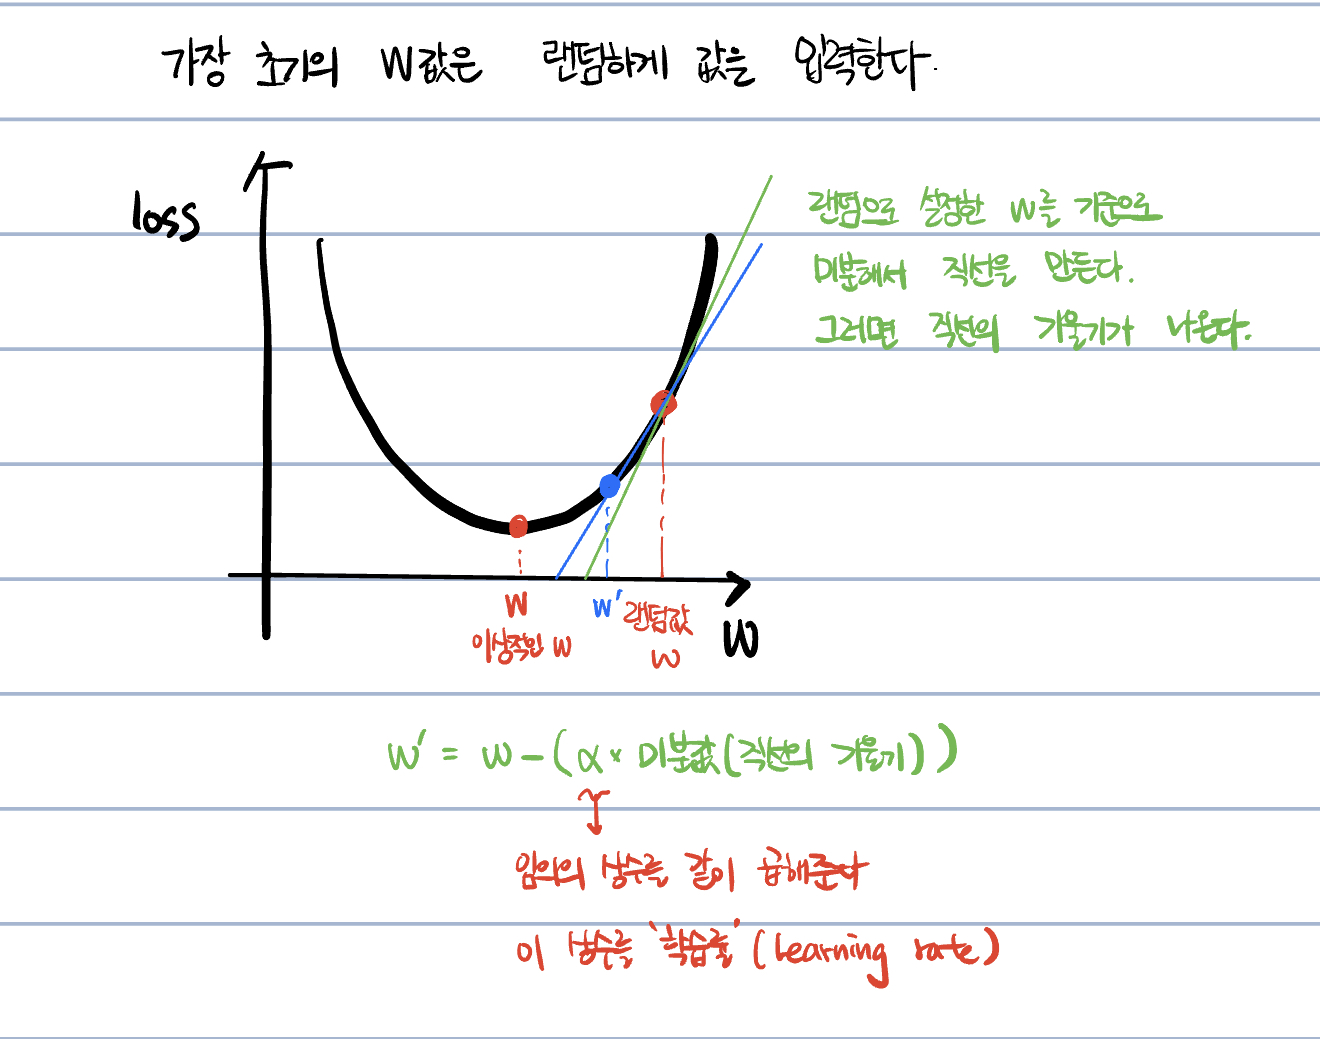 가장 초기의 W값은 랜덤하게 값을 입력한다.
loss
랜덤으로 설정한 W를 기준으로
미분해서 직선을 만든다.
그러면 직선의 기울기가 나온다.
W
이상적인 W
W'
랜덤값
W
W
W' = W - (α × 미분값(직선의 기울기))
임의의 상수를 같이 곱해준다
이 상수를 '학습률' (learning rate)